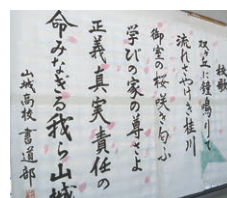 校歌
双ヶ丘に鐘鳴りて
流れさやけき桂川
御室の桜咲き匂ふ
学びの家の尊さよ
正義真実責任の
命みなぎる我ら山城
山城高校 書道部